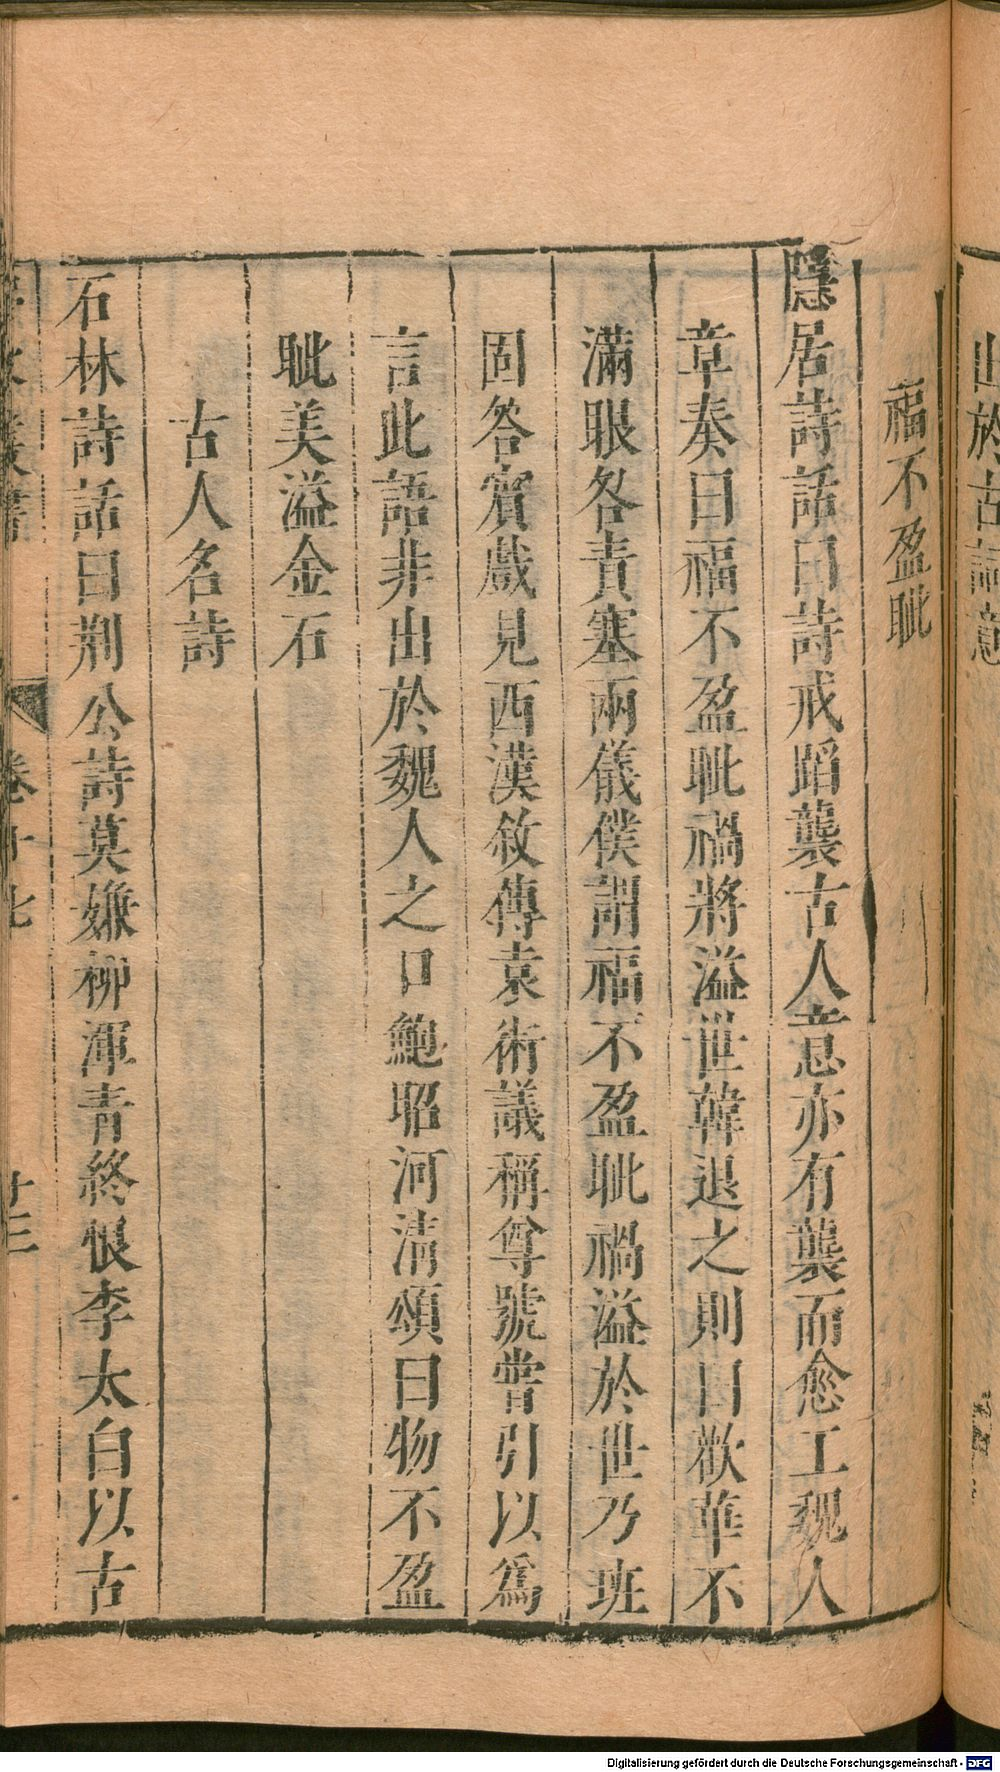 山於古詩意
福不盈眦
隱居詩話曰詩戒蹈襲古人意亦有襲而愈工魏人
章奏曰福不盈眦禍將溢世韓退之則曰歡華不
滿眼咎責塞兩儀僕謂福不盈眦禍溢於世乃班
固答賓戲見西漢敘傳袁術議稱尊號嘗引以爲
言此語非出於魏人之口鮑昭河清頌曰物不盈
眦美溢金石
古人名詩
石林詩話曰荆公詩莫嫌柳渾青終恨李太白以古
叢書 卷十七 廿三
Digitalisierung gefördert durch die Deutsche Forschungsgemeinschaft - DFG